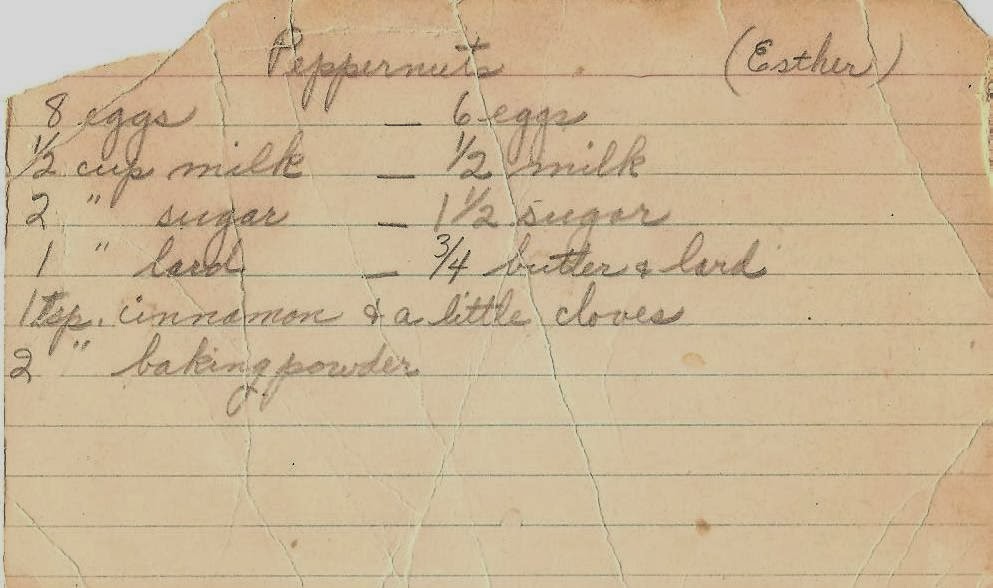 Peppernuts (Esther)
8 eggs — 6 eggs
1/2 cup milk — 1/2 milk
2 " sugar — 1 1/2 sugar
1 " lard — 3/4 butter & lard
1 tsp. cinnamon & a little cloves
2 " baking powder